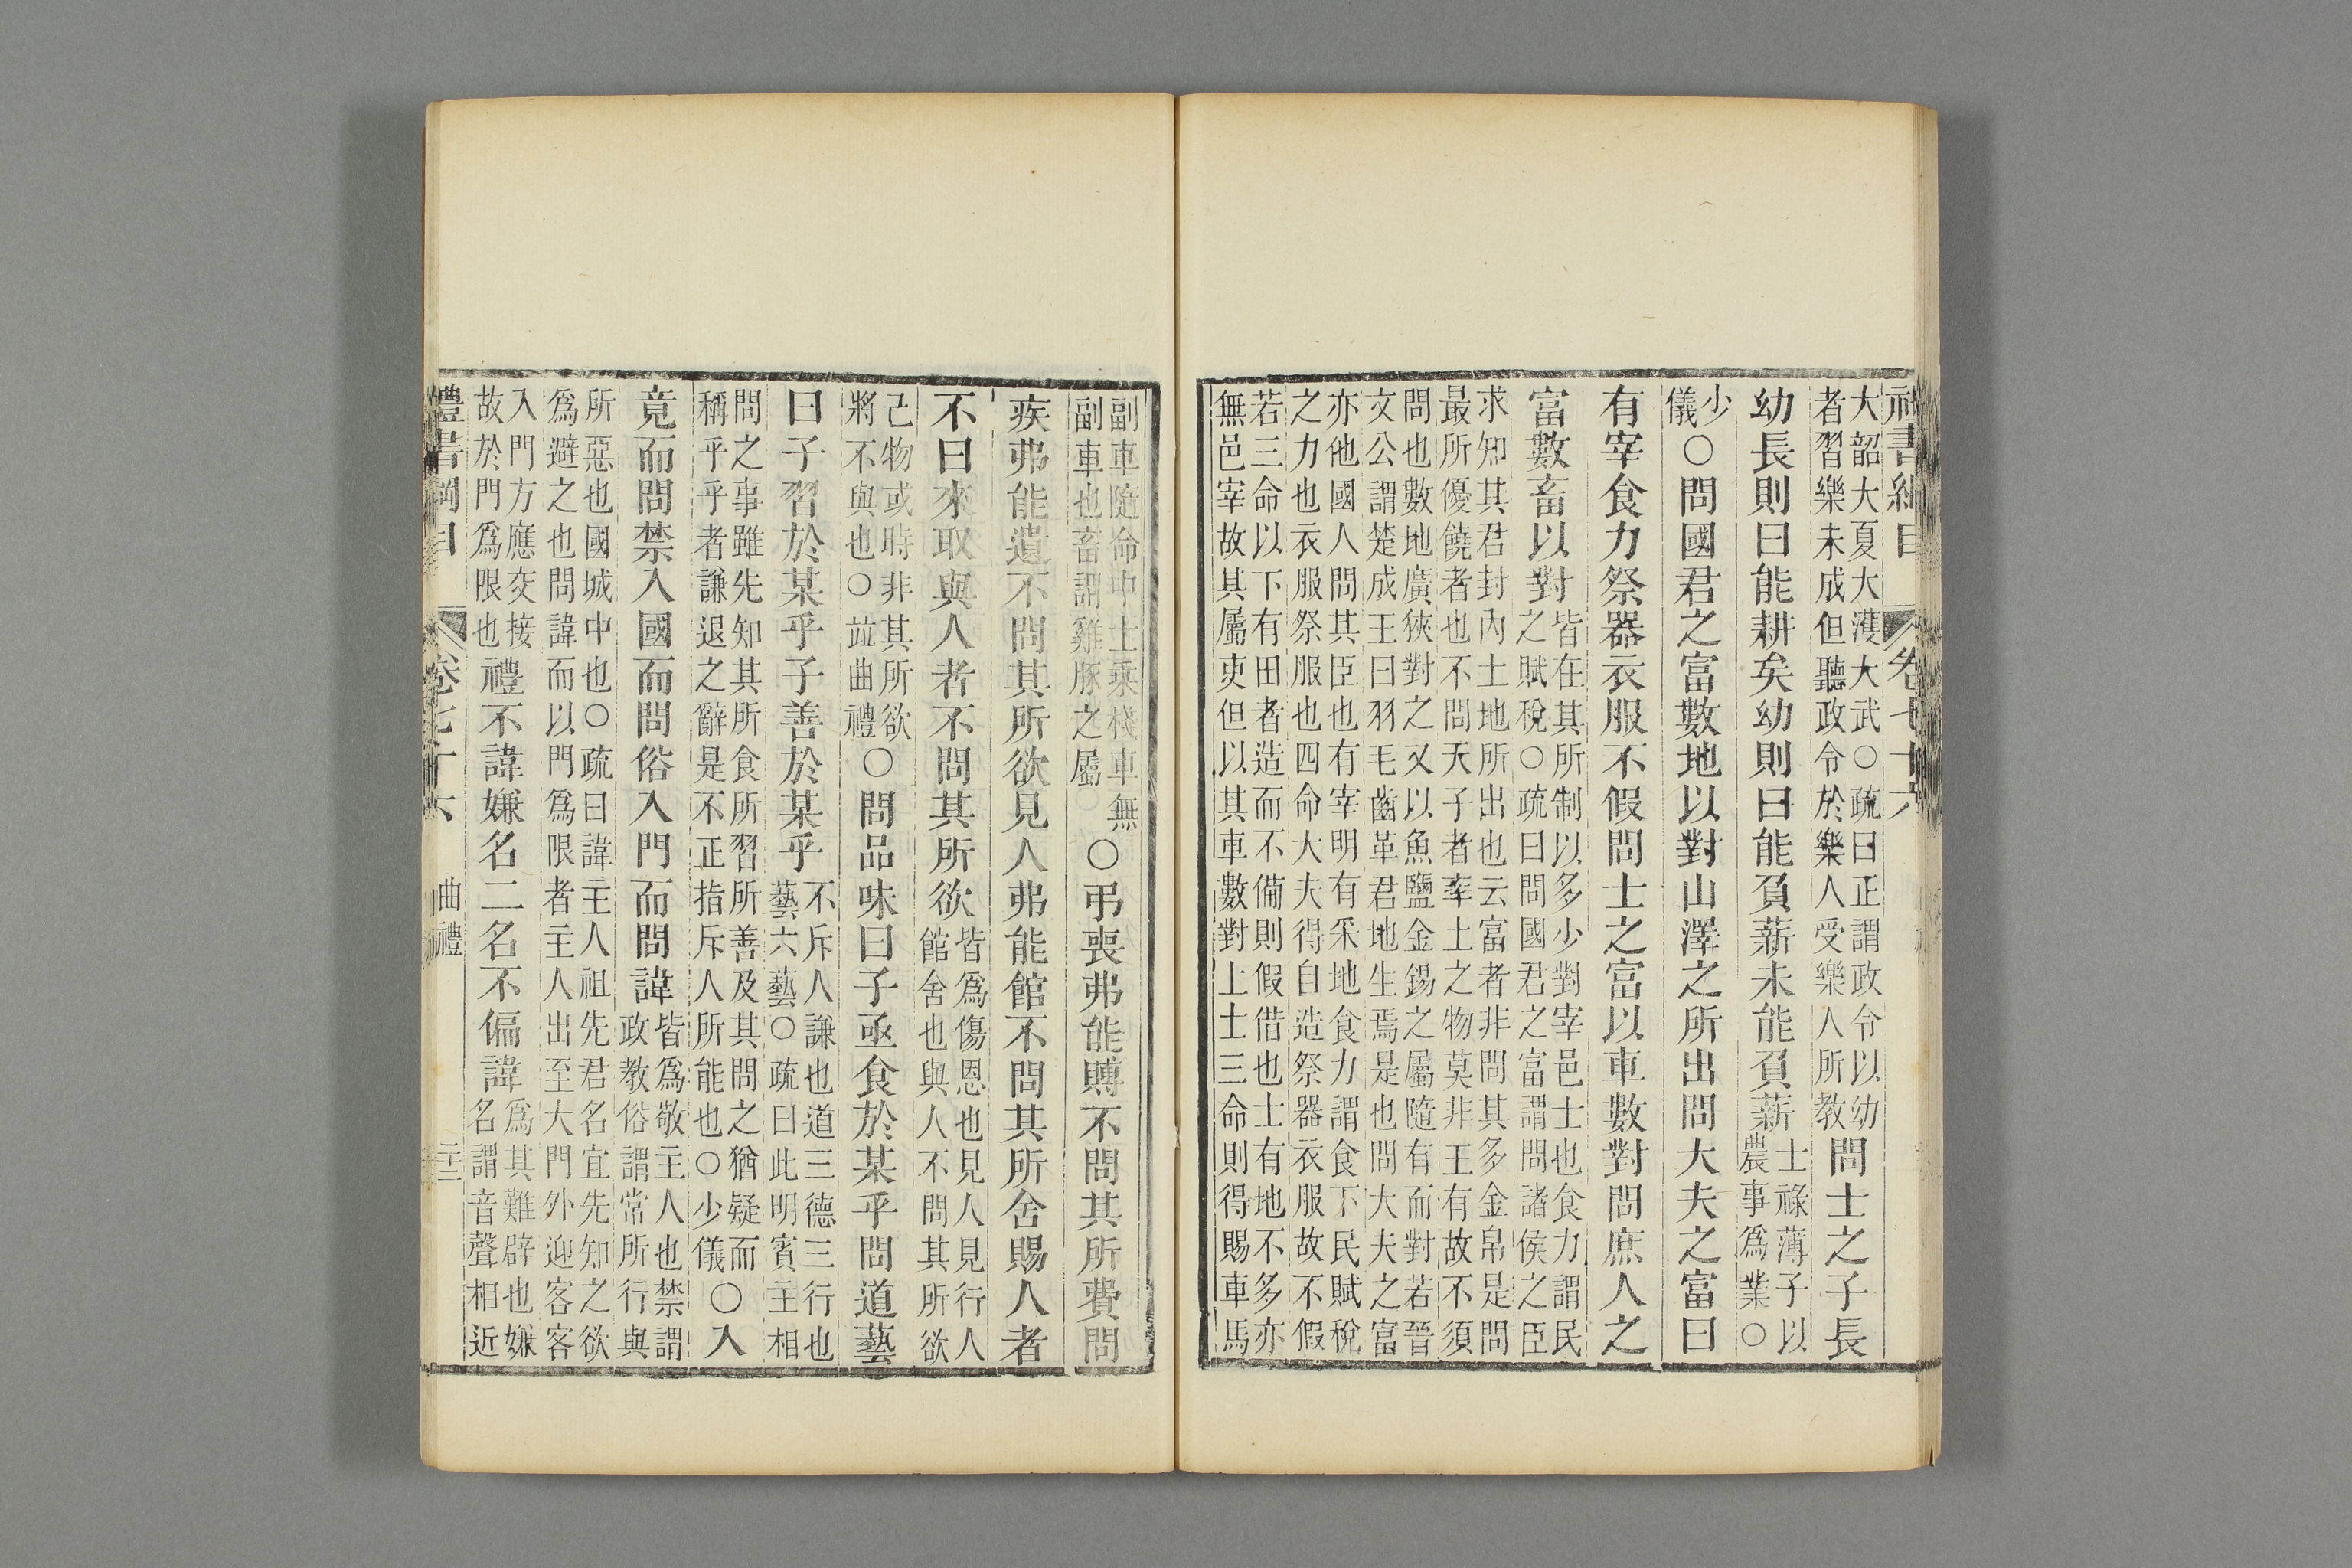 禮書綱目 卷七十六
大韶大夏大濩大武○疏曰正謂政令以幼
者習樂未成但聽政令於樂人受樂人所教
問士之子長
幼長則曰能耕矣幼則曰能負薪未能負薪
士祿薄子以
農事爲業○
少
儀
○問國君之富數地以對山澤之所出問大夫之富曰
有宰食力祭器衣服不假問士之富以車數對問庶人之
富數畜以對
皆在其所制以多少對宰邑士也食力謂民
之賦稅○疏曰問國君之富謂問諸侯之臣
求知其君封內土地所出也云富者非問其多金帛是問
最所優饒者也不問天子者率土之物莫非王有故不須
問也數地廣狹對之又以魚鹽金錫之屬隨有而對若晉
文公謂楚成王曰羽毛齒革君地生焉是也問大夫之富
亦他國人問其臣也有宰明有采地食力謂食下民賦稅
之力也衣服祭服也四命大夫得自造祭器衣服故不假
若三命以下有田者造而不備則假借也士有地不多亦
無邑宰故其屬吏但以其車數對上士三命則得賜車馬
副車隨命中士乘棧車無
副車也畜謂雞豚之屬
○弔喪弗能賻不問其所費問
疾弗能遺不問其所欲見人弗能館不問其所舍賜人者
不曰來取與人者不問其所欲
皆爲傷恩也見人見行人
館舍也與人不問其所欲
己物或時非其所欲
將不與也○竝曲禮
○問品味曰子亟食於某乎問道藝
曰子習於某乎子善於某乎
不斥人謙也道三德三行也
藝六藝○疏曰此明賓主相
問之事雖先知其所食所習所善及其問之猶疑而
稱乎乎者謙退之辭是不正指斥人所能也○少儀
○入
竟而問禁入國而問俗入門而問諱
皆爲敬主人也禁謂
政教俗謂常所行與
所惡也國城中也○疏曰諱主人祖先君名宜先知之欲
爲避之也問諱而以門爲限者主人出至大門外迎客客
入門方應交接
故於門爲限也
禮不諱嫌名二名不偏諱
爲其難辟也嫌
名謂音聲相近
禮書綱目 卷七十六 曲禮 二十三